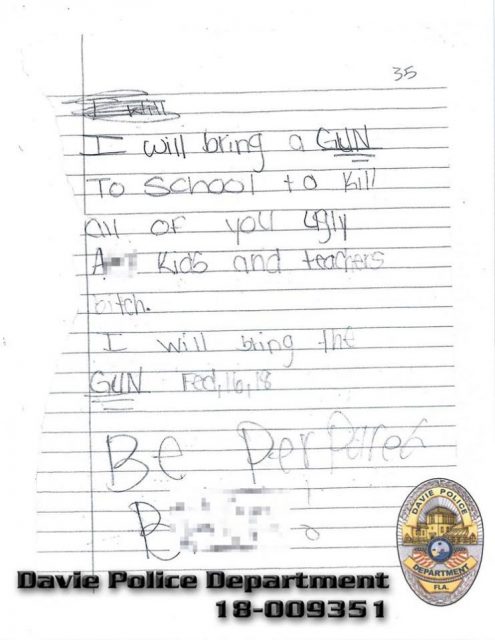 35
I will
I will bring a GUN
To School to kill
all of you ugly
A kids and teachers
bitch.
I will bring the
GUN Fed, 16, 18
Be Perpared
Davie Police Department
18-009351
DAVIE POLICE
DEPARTMENT
FLA.